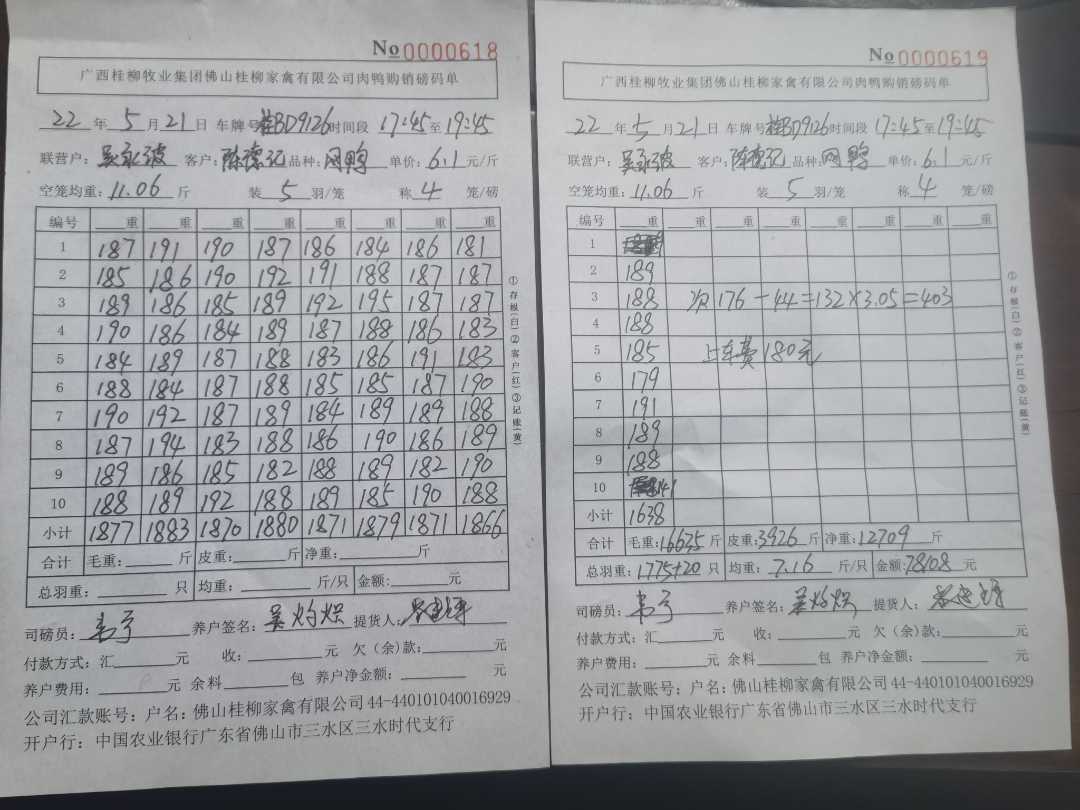 No 0000618
广西桂柳牧业集团佛山桂柳家禽有限公司肉鸭购销磅码单
22 年 5 月 21 日 车牌号 桂BD9126 时间段 17:45 至 19:45
联营户: 吴永波 客户: 陈德记 品种: 网鸭 单价: 6.1 元/斤
空笼均重: 11.06 斤 装 5 羽/笼 称 4 笼/磅
编号 重 重 重 重 重 重 重 重
1 187 191 190 187 186 184 186 181
2 185 186 190 192 191 188 187 187
3 189 186 185 189 192 195 187 187
4 190 186 184 189 187 188 186 183
5 184 189 187 188 183 186 191 183
6 188 184 187 188 185 185 187 190
7 190 192 187 189 184 189 189 188
8 187 194 183 188 186 190 186 189
9 189 186 185 182 188 189 182 190
10 188 189 192 188 189 185 190 188
小计 1877 1883 1870 1880 1871 1879 1871 1866
合计 毛重: 斤 皮重: 斤 净重: 斤
总羽重: 只 均重: 斤/只 金额: 元
司磅员: 养户签名: 吴灼炽 提货人:
付款方式: 汇 元 收: 元 欠(余)款: 元
养户费用: 元 余料 包 养户净金额: 元
公司汇款账号: 户名: 佛山桂柳家禽有限公司 44-440101040016929
开户行: 中国农业银行广东省佛山市三水区三水时代支行
①存根(白)②客户(红)③记账(黄)
No 0000619
广西桂柳牧业集团佛山桂柳家禽有限公司肉鸭购销磅码单
22 年 5 月 21 日 车牌号 桂BD9126 时间段 17:45 至 19:45
联营户: 吴永波 客户: 陈德记 品种: 网鸭 单价: 6.1 元/斤
空笼均重: 11.06 斤 装 5 羽/笼 称 4 笼/磅
编号 重 重 重 重 重 重 重 重
1
2 189
3 188 次 176-44=132×3.05=403
4 188
5 185 上车费 180元
6 179
7 191
8 189
9 188
10 141
小计 1638
合计 毛重: 16635 斤 皮重: 3926 斤 净重: 12709 斤
总羽重: 1775+20 只 均重: 7.16 斤/只 金额: 78108 元
司磅员: 养户签名: 吴灼炽 提货人:
付款方式: 汇 元 收: 元 欠(余)款: 元
养户费用: 元 余料 包 养户净金额: 元
公司汇款账号: 户名: 佛山桂柳家禽有限公司 44-440101040016929
开户行: 中国农业银行广东省佛山市三水区三水时代支行
①存根(白)②客户(红)③记账(黄)